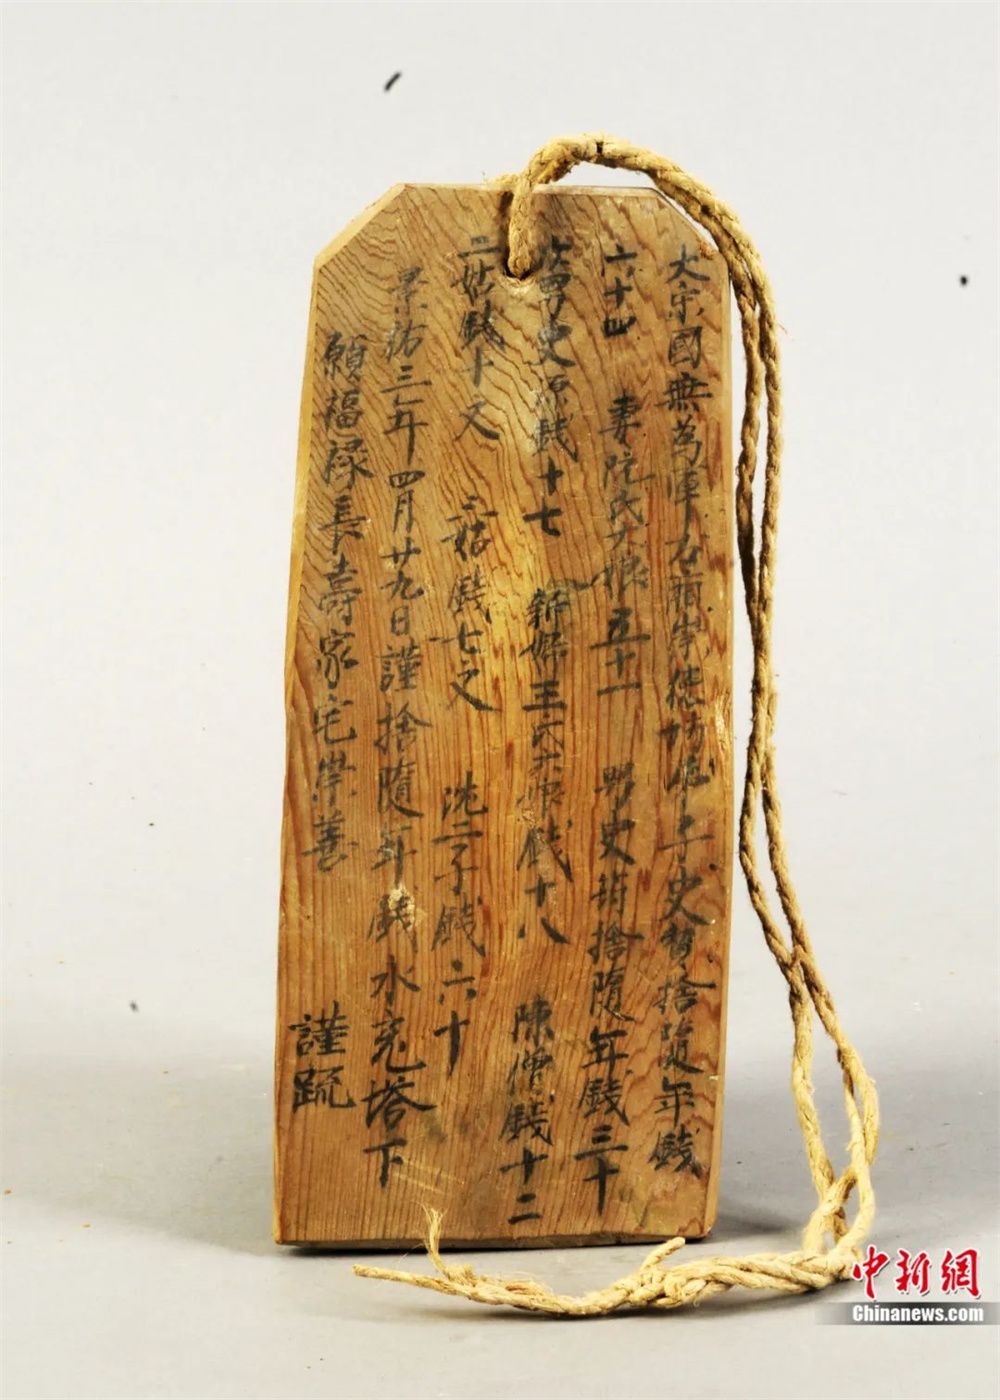 大宋國無為軍右廂崇德坊弟子史質捨隨年錢
六十四　妻阮氏大娘五十一　男史筠捨隨年錢三十
次男史源錢十七　新婦王氏大娘錢十八　陳僧錢十二
二姑錢十文　三姑錢七文　沈二子錢六十
景祐三年四月廿九日謹捨隨年錢水充塔下
願福祿長壽家宅崇善　謹疏
中新網
Chinanews.com